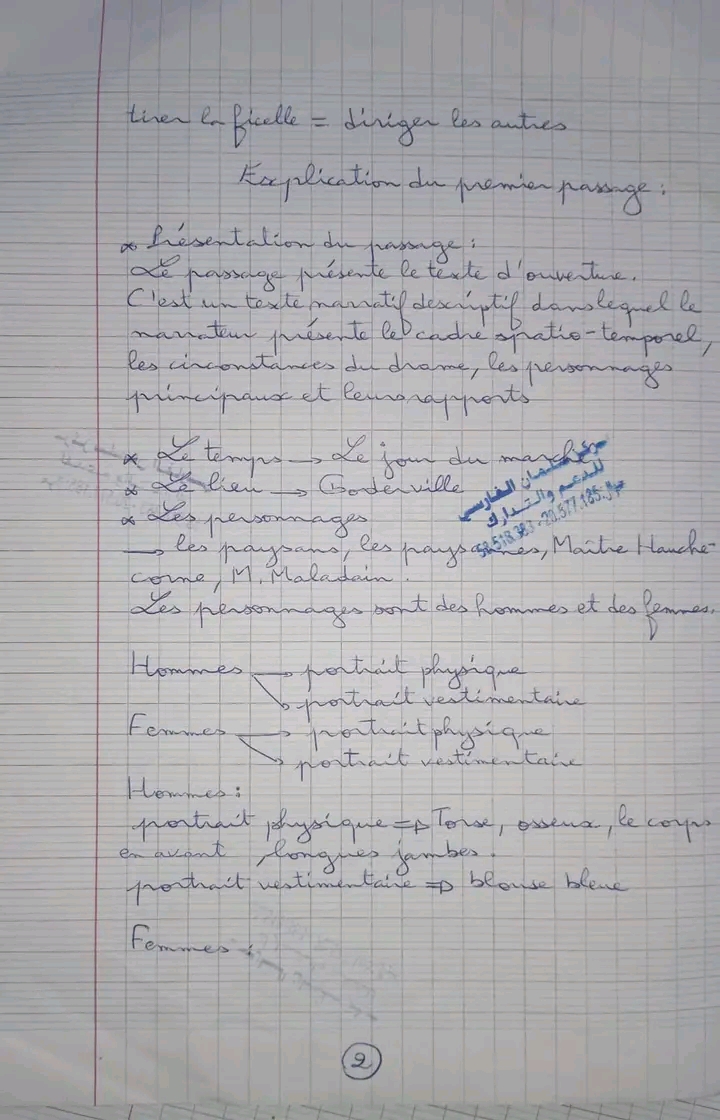 tirer la ficelle = diriger les autres
Explication du premier passage :
* Présentation du passage :
Le passage présente le texte d'ouverture.
C'est un texte narratif descriptif dans lequel le
narrateur présente le cadre spatio-temporel,
les circonstances du drame, les personnages
principaux et leurs rapports
* Le temps → Le jour du marché
* Le lieu → Goderville
* Les personnages
→ les paysans, les paysannes, Maître Hauche-
corne, M. Maladain.
Les personnages sont des hommes et des femmes.
مركز سلمان الفارسي
للدعم والتدارك
Hommes → portrait physique
↘ portrait vestimentaire
Femmes → portrait physique
↘ portrait vestimentaire
Hommes :
portrait physique ⇒ Torse, osseux, le corps
en avant, longues jambes.
portrait vestimentaire ⇒ blouse bleue
Femmes :
2